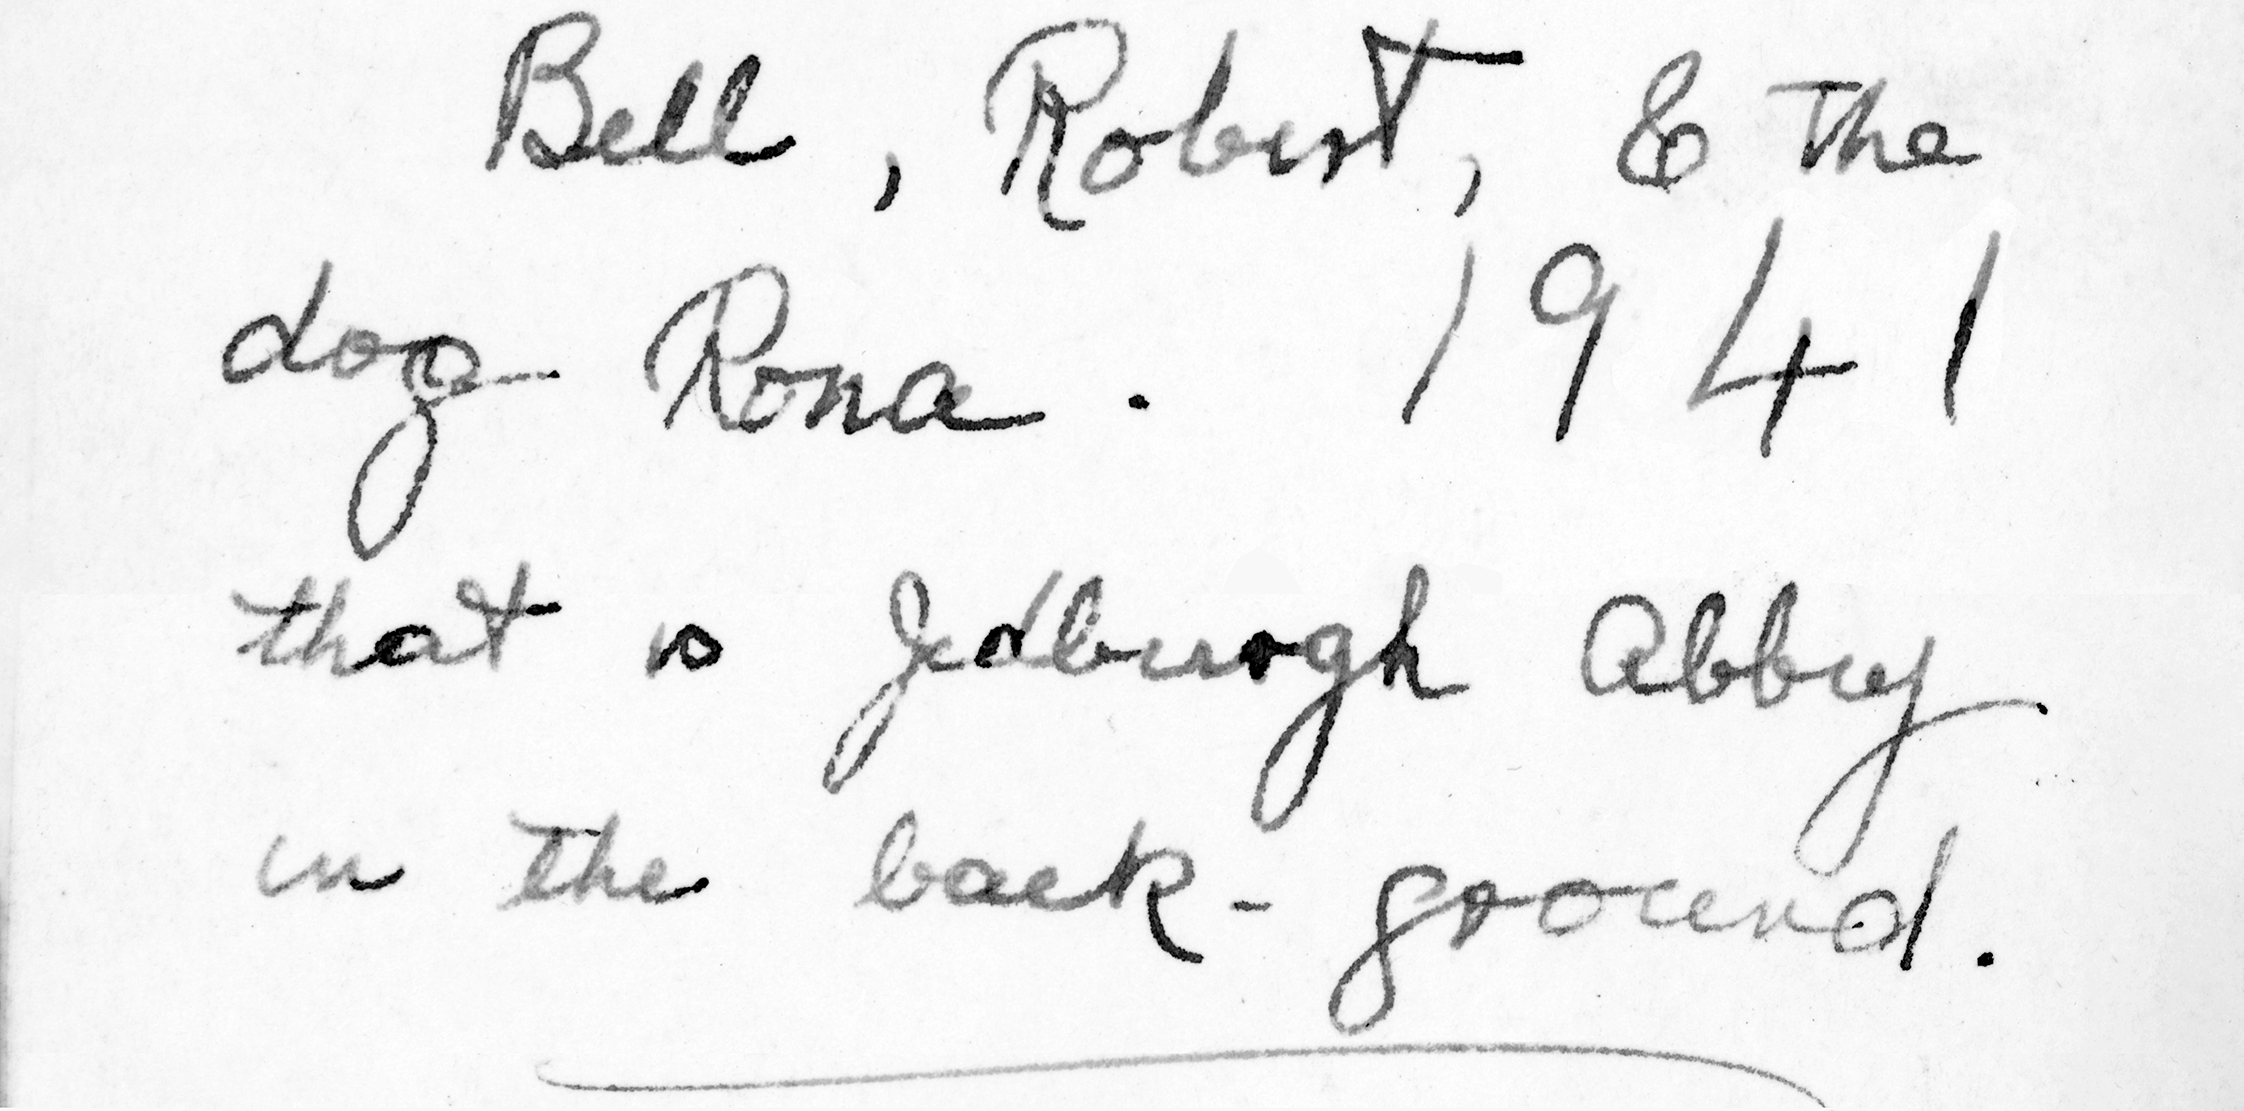 Bell, Robert, & the
dog Rona. 1941
that is Jedburgh Abbey
in the back-ground.